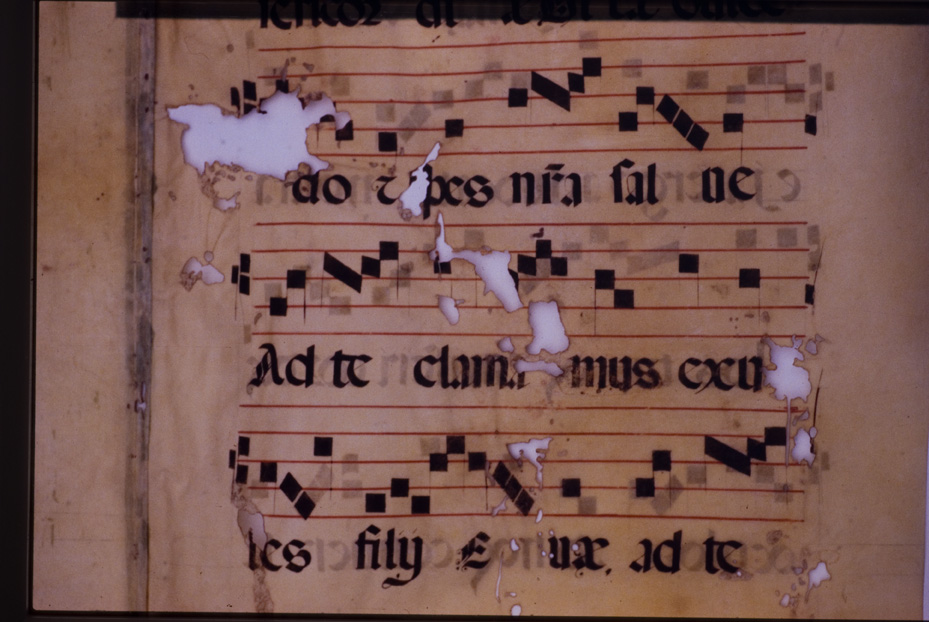 do ⁊ pes nr̃a ſal ue
Ad te clama mus exu
les filij E uæ. ad te